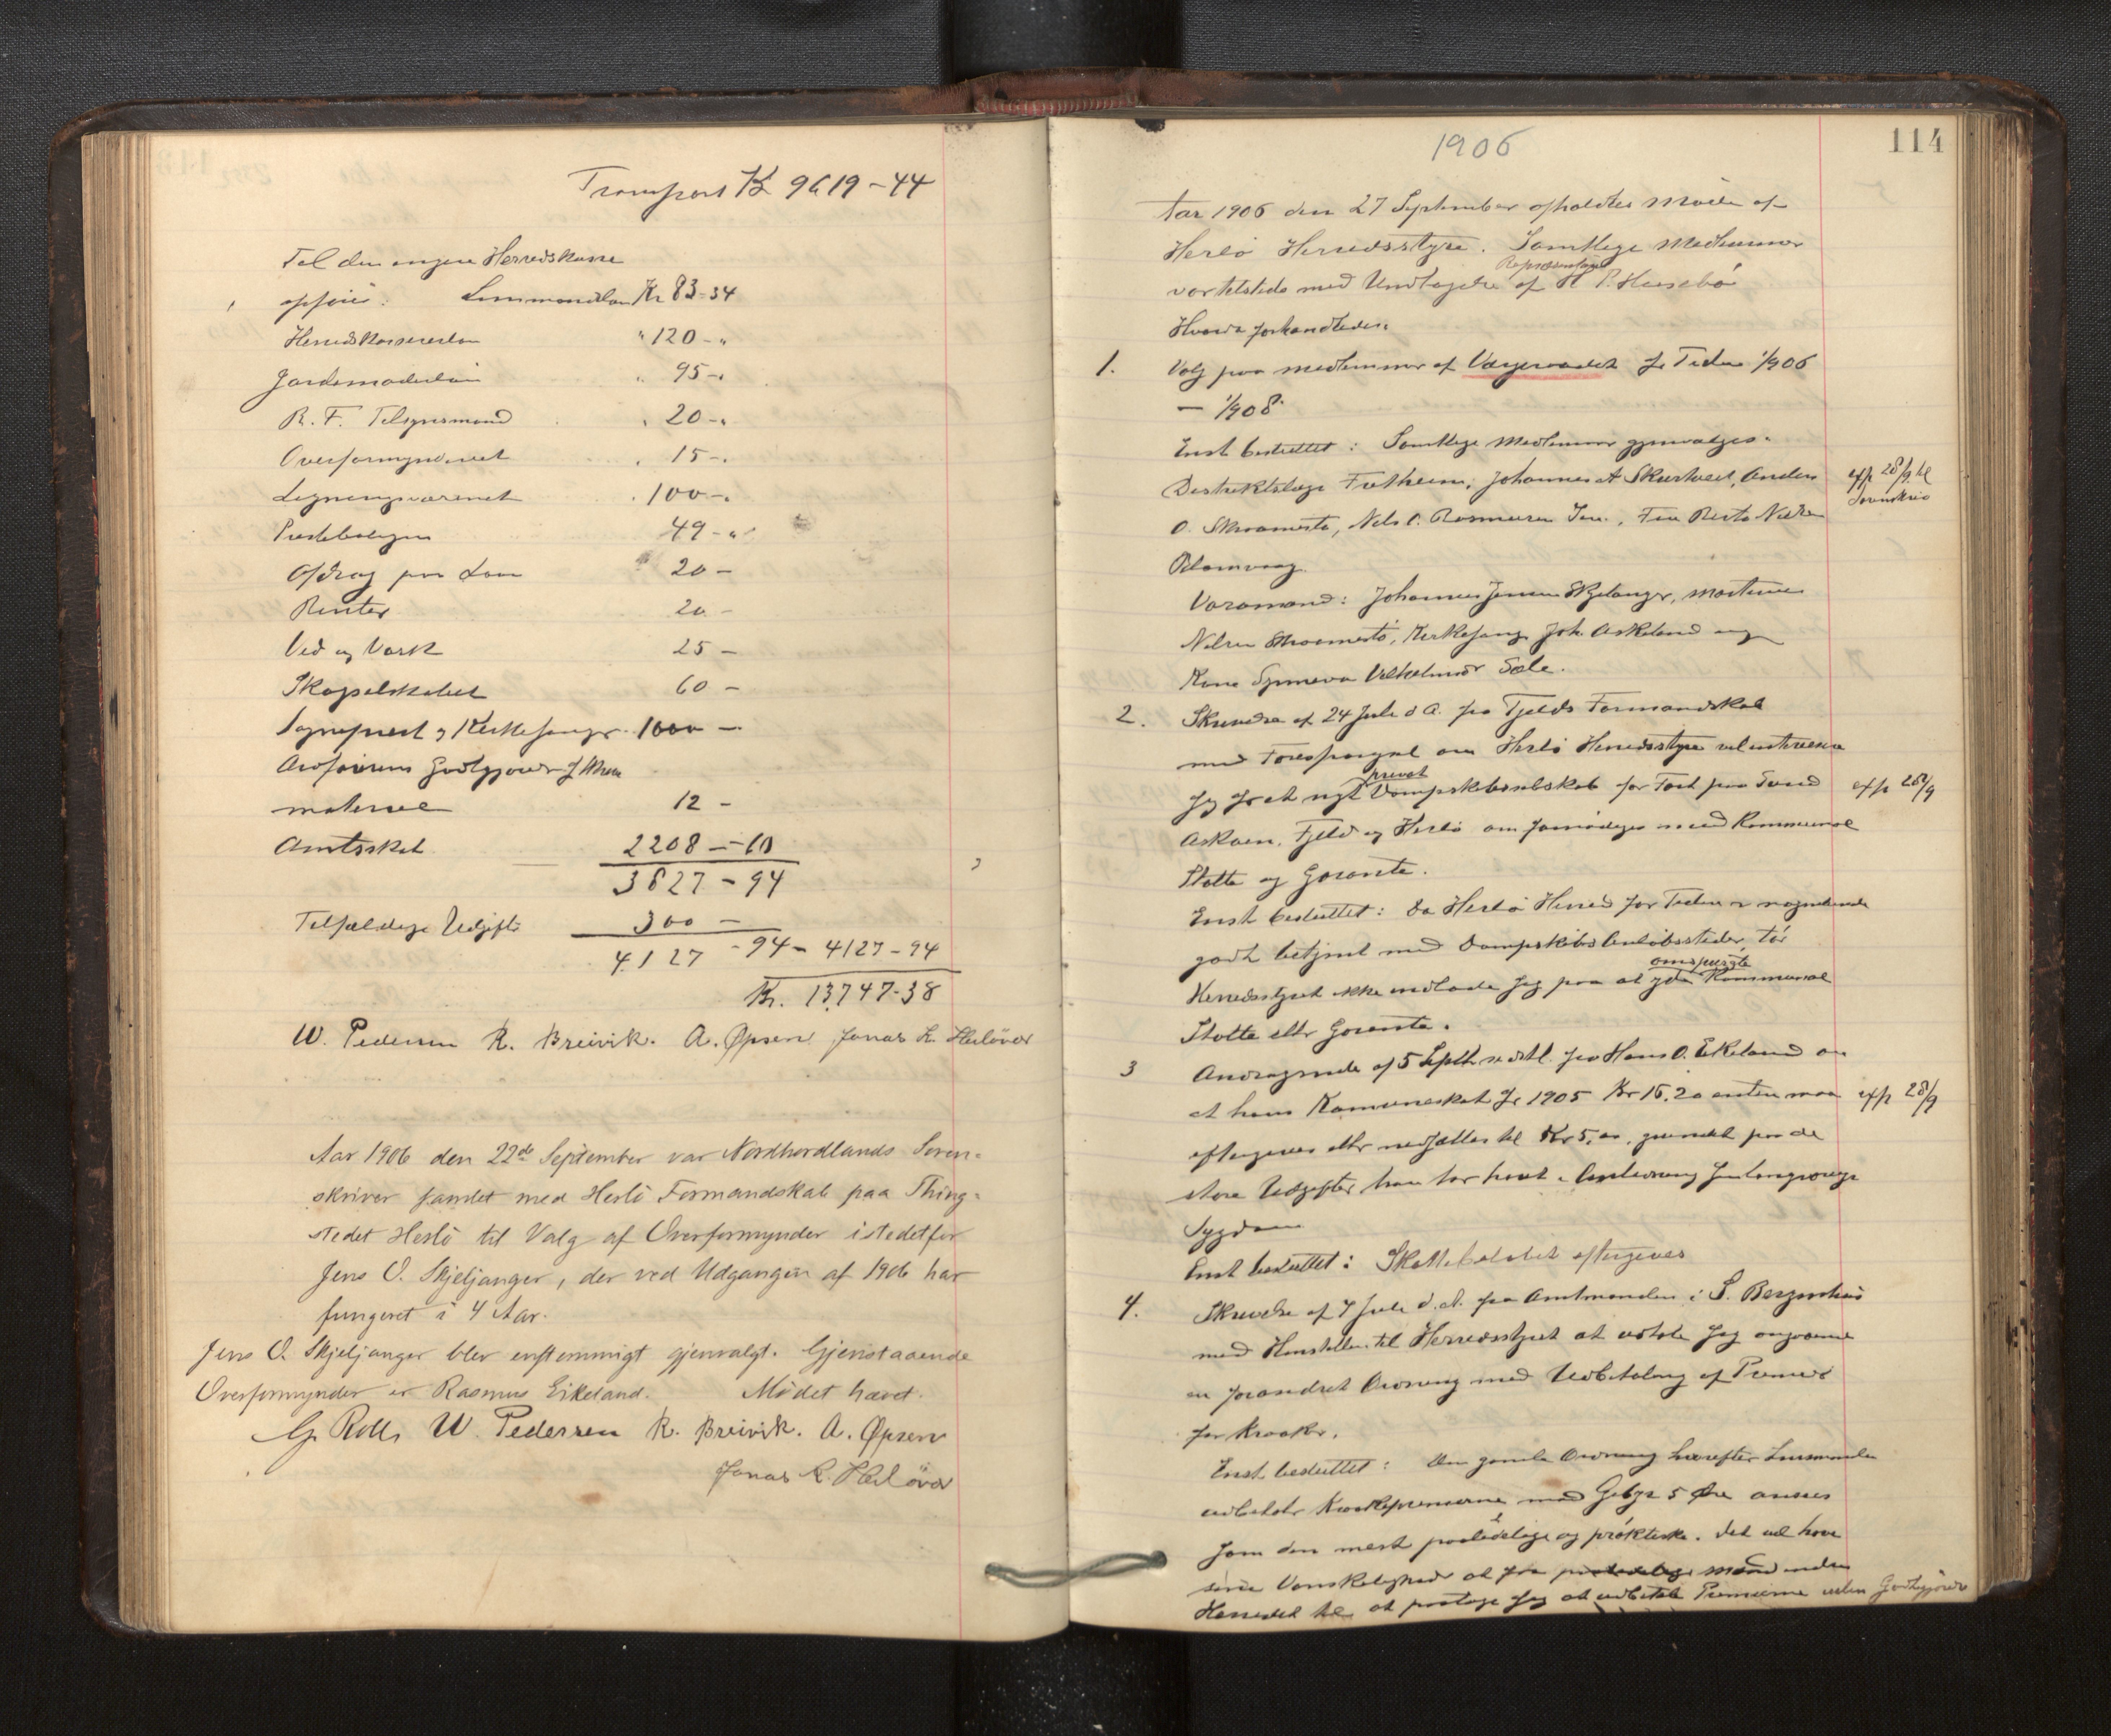 Transport Kr 9619-44
Til den engere Herredskasse
opføies: Lensmandsløn Kr 83-34
Herredskassererløn " 120-"
Jordemoderløn " 95-"
R. F. Tilsynsmand " 20-"
Overformynderiet " 15-"
Ligningsvæsenet " 100-"
Prestebolig 49-"
Afdrag paa Laan " 20-
Renter 20-
Ved og Vask 25-
Skogselskabet 60-
Sogneprest og Kirkesanger 1600-
Godtgjørelse f
materiel 12-
Amtsskat 2208-60
3827-94
Tilfældige Udgifter 300-
4127-94- 4127-94
Kr. 13,747-38
W. Pedersen R. Breivik. A. Øpsen Jonas R. Herløver
Aar 1906 den 22de September var Nordhordlands Soren-
skriver samlet med Herlö Formandskab paa Thing-
stedet Herlö til Valg af Overformynder istedetfor
Jens O. Skjeljanger, der ved Udgangen af 1906 har
fungeret i 4 Aar.
Jens O. Skjeljanger blev enstemmigt gjenvalgt. Gjenstaaende
Overformynder er Rasmus Eikeland. Mödet hævet.
G. Roll W. Pedersen R. Breivik. A. Øpsen
Jonas R. Herlöver
1906
114
Aar 1906 den 27 September afholdtes Møde af
Herlö Herredsstyre. Samtlige Medlemmer
Repræsentant
var tilstede med Undtagelse af P. Husebö
Hvorda forhandledes:
1. Valg paa medlemmer af Værgeraadet for Tiden 1/1 906
- 1/1 908.
Enst besluttet: Samtlige Medlemmer gjenvælges.
Distriktslæge Fretheim, Johannes A Skurtveit, Anders exp 28/9 til
O. Skraamestø, Nels O. Rasmussen Fru Nielsen Sorenskriv
Blomvaag.
Varamænd: Johannes Jensen Skjelanger, Martinus
Nilsen Skraamestö, Kirkesanger Joh. Askeland og
Kone Synneva Vilhelmsdr Sæle.
2. Skrivelse af 24 Juli d A. fra Fjelds Formandskab
med Forespørgsel om Herlö Herredsstyre vil interessere
privat
sig for et nyt Dampskibsselskab for Fart paa Sund exp 28/9
Askøen, Fjeld og Herlö om fornødiges med Kommunal
Støtte og Garante.
Enst besluttet: Da Herlö Herred for Tiden er nogenlunde
godt betjent med Dampskibs Anløbssteder, tör
omspurgte
Herredsstyret ikke indlade sig paa at yde Kommunal
Støtte eller Garante.
3 Andragende af 5 Septbr fra Hans O. Eikeland om
at hans Komuneskat for 1905 Kr 16,20 enten maa exp 28/9
eftergives eller nedsættes til Kr 5,00, grundet paa de
store Udgifter han har havt i Anledning langvarige
Sygdom
Enst besluttet: Skattebeløbet eftergives
4. Skrivelse af 7 Juli d. A. fra Amtmanden i S. Bergenhus
med Henstillen til Herredsstyret at udtale sig angaaende
en forandret Ordning med Udbetaling af Premier
for Kraaker.
Enst besluttet: Den gamle Ordning hvorefter Lensmanden
udbetaler Kraakepremierne mod Gebyr 5 Øre ansees
som den mest paalidelige og praktiske. Det vil have
sine Vanskeligheder at faa paalidelige Mænd inden
Herredet til at paatage sig at udbetale Premierne uden Godtgjørelse